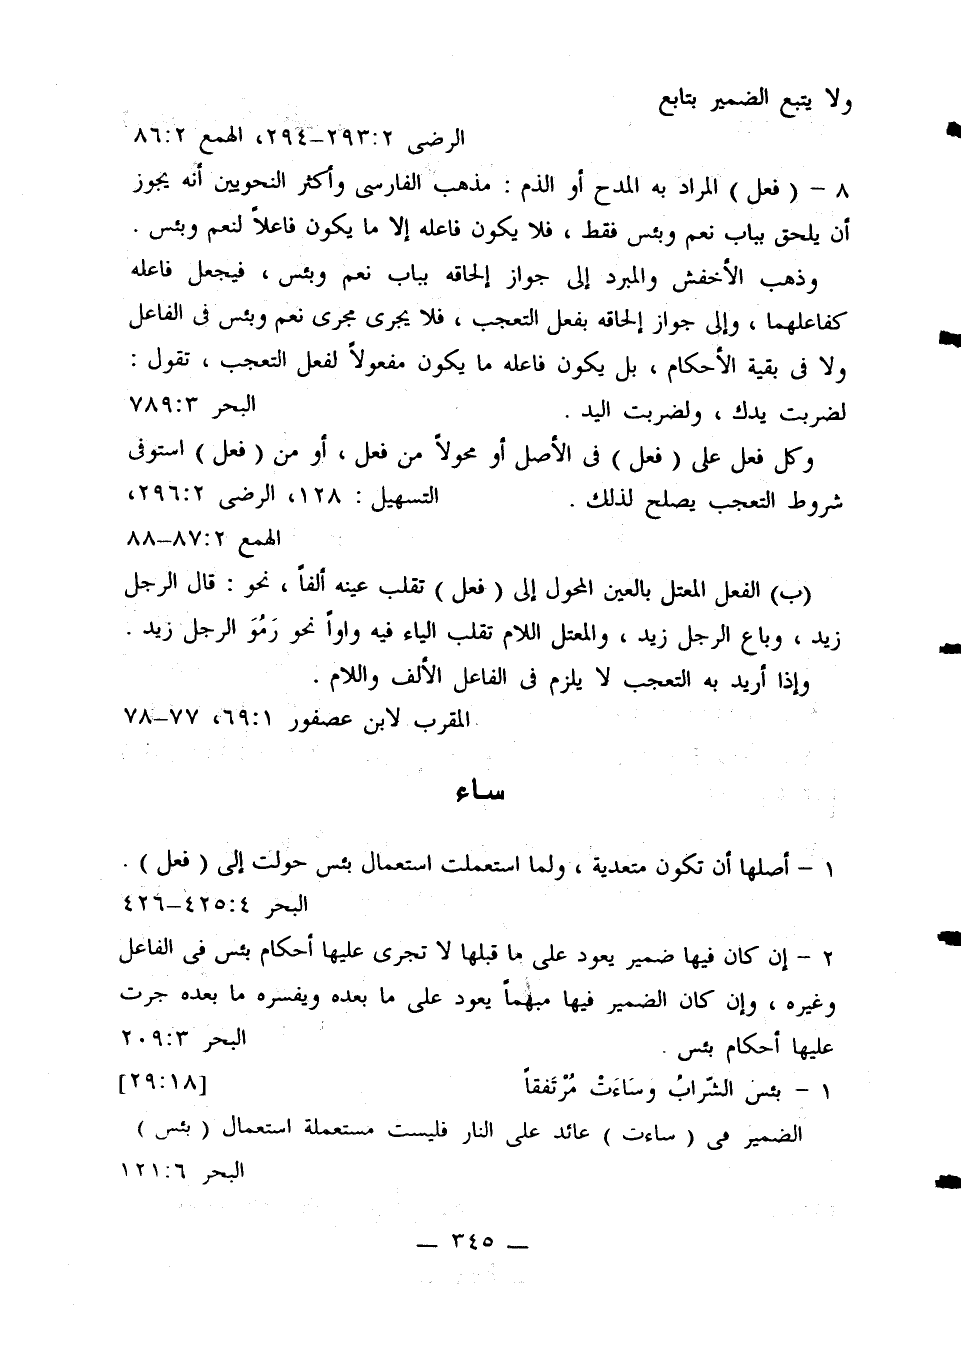 ولا يتبع الضمير بتابع
الرضى ٢٩٣:٢–٢٩٤، الهمع ٨٦:٢
٨ – ( فعل ) المراد به المدح أو الذم : مذهب الفارسى وأكثر النحويين أنه يجوز
أن يلحق بباب نعم وبئس فقط ، فلا يكون فاعله إلا ما يكون فاعلاً لنعم وبئس .
وذهب الأخفش والمبرد إلى جواز إلحاقه بباب نعم وبئس ، فيجعل فاعله
كفاعلهما ، وإلى جواز إلحاقه بفعل التعجب ، فلا يجرى مجرى نعم وبئس فى الفاعل
ولا فى بقية الأحكام ، بل يكون فاعله ما يكون مفعولاً لفعل التعجب ، تقول :
لضربت يدك ، ولضربت اليد . البحر ٧٨٩:٣
وكل فعل على ( فعل ) فى الأصل أو محولاً من فعل ، أو من ( فعل ) استوفى
شروط التعجب يصلح لذلك . التسهيل : ١٢٨، الرضى ٢٩٦:٢،
الهمع ٨٧:٢–٨٨
(ب) الفعل المعتل بالعين المحول إلى ( فعل ) تقلب عينه ألفاً ، نحو : قال الرجل
زيد ، وباع الرجل زيد ، والمعتل اللام تقلب الياء فيه واواً نحو رَمُوَ الرجل زيد .
وإذا أريد به التعجب لا يلزم فى الفاعل الألف واللام .
المقرب لابن عصفور ٦٩:١، ٧٧–٧٨
ساء
١ – أصلها أن تكون متعدية ، ولما استعملت استعمال بئس حولت إلى ( فعل ) .
البحر ٤٢٥:٤–٤٢٦
٢ – إن كان فيها ضمير يعود على ما قبلها لا تجرى عليها أحكام بئس فى الفاعل
وغيره ، وإن كان الضمير فيها مبهماً يعود على ما بعده ويفسره ما بعده جرت
عليها أحكام بئس . البحر ٢٠٩:٣
١ – بئس الشّرابُ وسَاءَتْ مُرْتَفقاً [٢٩:١٨]
الضمير فى ( ساءت ) عائد على النار فليست مستعملة استعمال ( بئس )
البحر ١٢١:٦
— ٣٤٥ —